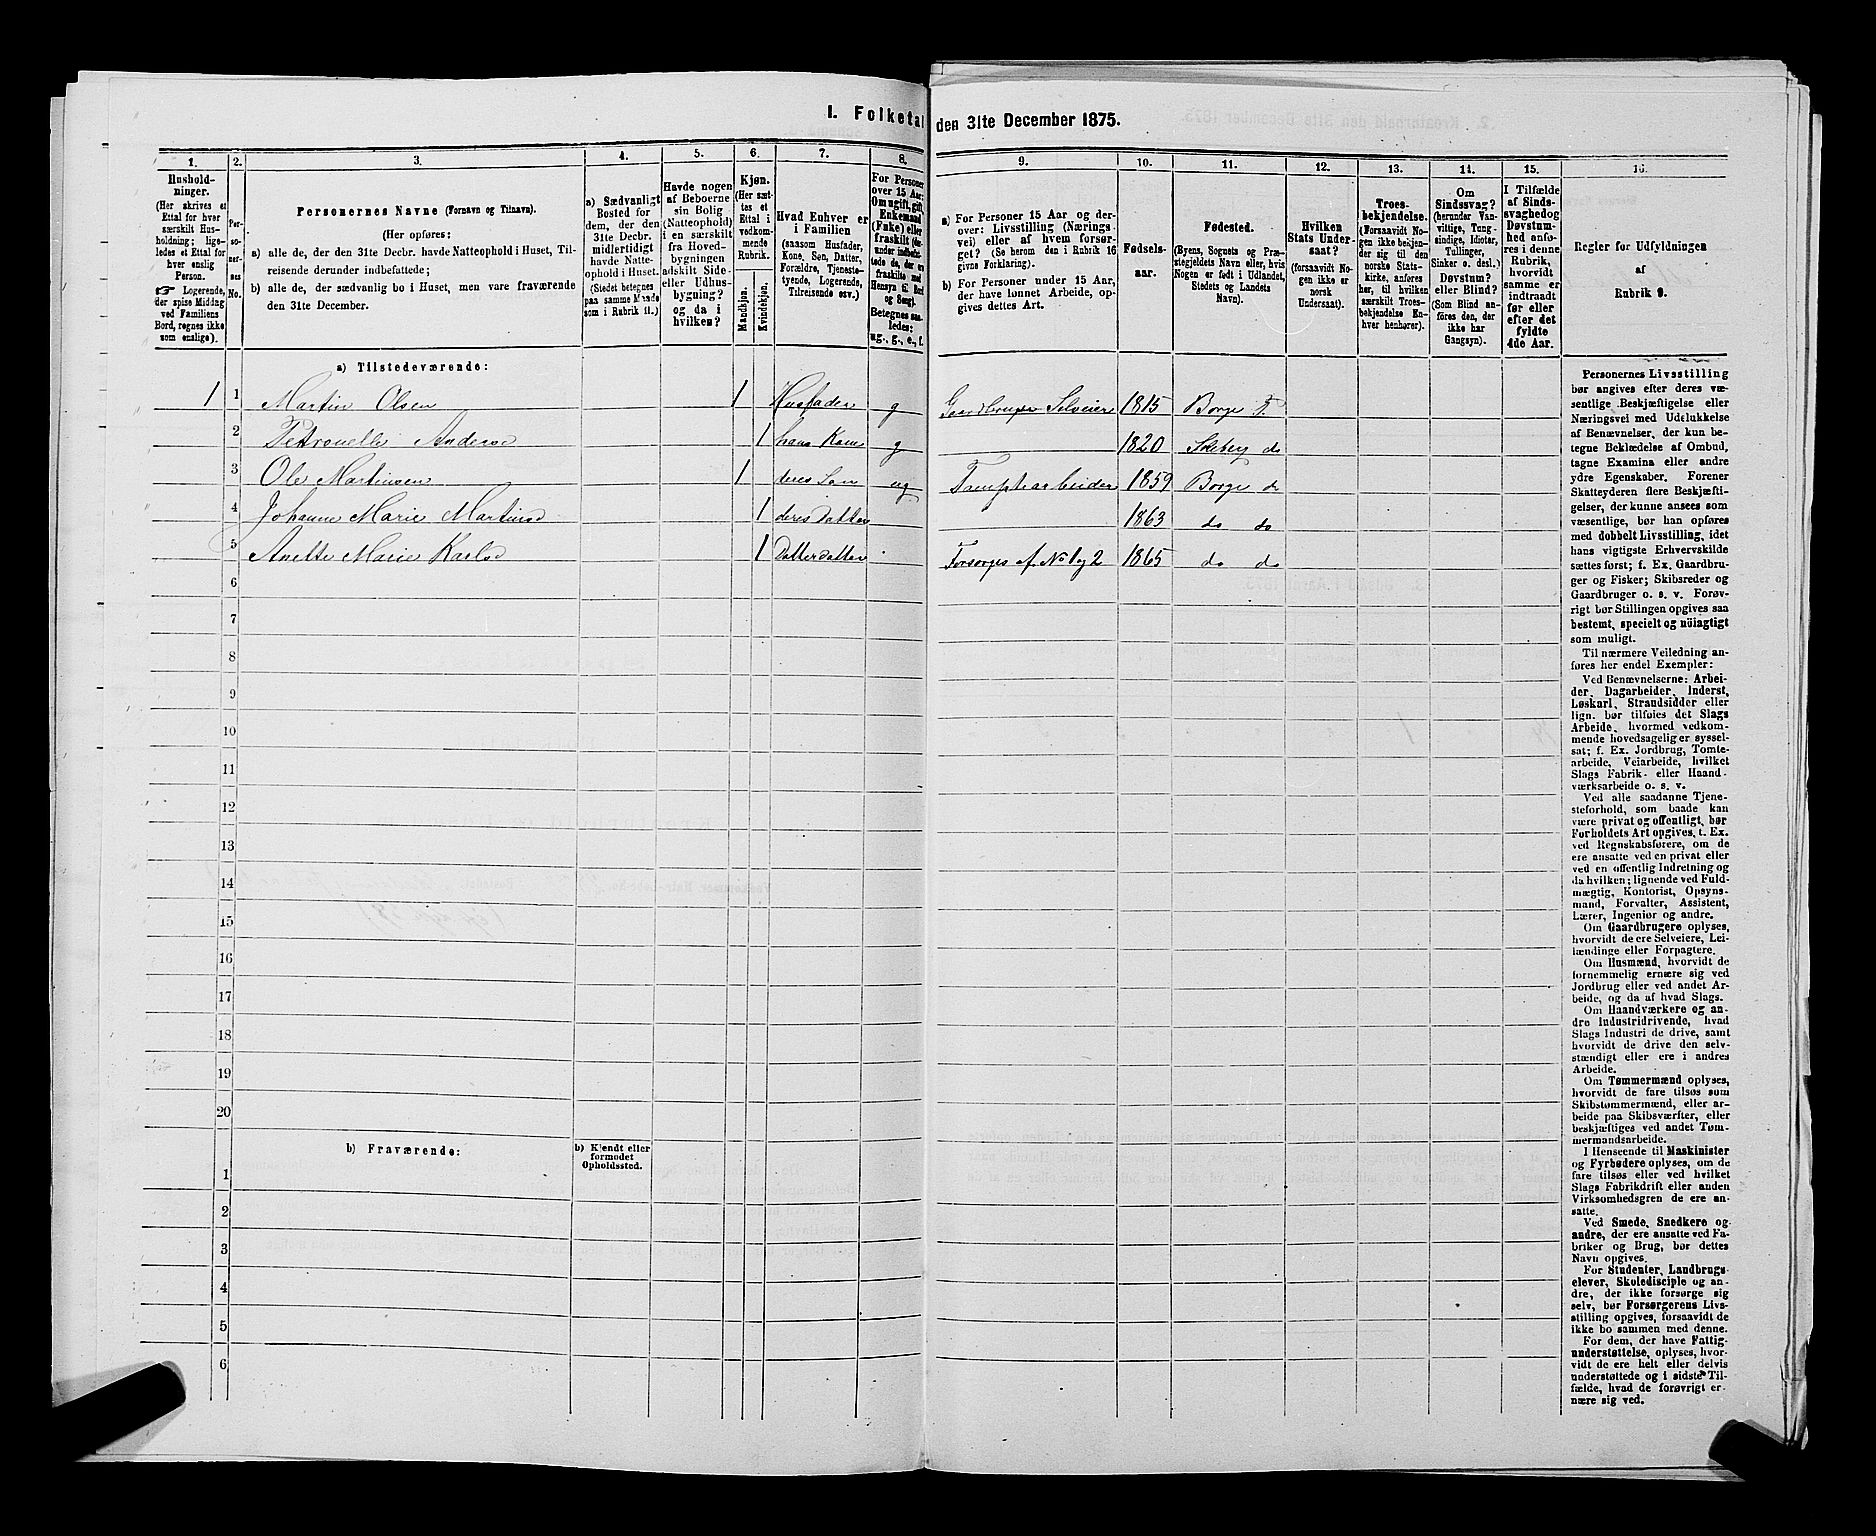 I. Folketal den 31te December 1875.
1. 2. 3. 4. 5. 6. 7. 8. 9. 10. 11. 12. 13. 14. 15. 16.
Hushold-
ninger.
(Her skrives et
Ettal for hver
særskilt Hus-
holdning; lige-
ledes et Ettal for
hver enslig
Person.
☛ Logerende,
der spise Middag
ved Familiens
Bord, regnes ikke
som enslige).
Per-
so-
ner-
nes
No.
Personernes Navne (Fornavn og Tilnavn).
(Her opføres:
a) alle de, der den 31te Decbr. havde Natteophold i Huset, Til-
reisende derunder indbefattede;
b) alle de, der sædvanlig bo i Huset, men vare fraværende
den 31te December.
a) Sædvanligt
Bosted for
dem, der den
31te Decbr.
midlertidigt
havde Natte-
ophold i Huset.
(Stedet betegnes
paa samme Maade
som i Rubrik 11.)
Havde nogen
af Beboerne
sin Bolig
(Natteophold)
i en særskilt
fra Hoved-
bygningen
adskilt Side-
eller Udhus-
bygning?
og da i
hvilken?
Kjøn.
(Her sæt-
tes et
Ettal i
vedkom-
mende
Rubrik.
Mandkjøn.
Kvindekjøn.
Hvad Enhver er
i Familien
(saasom Husfader,
Kone, Søn, Datter,
Forældre, Tjeneste-
tyende, Logerende,
Tilreisende osv.)
For Personer
over 15 Aar:
Om ugift, gift,
Enkemand
(Enke) eller
fraskilt
Betegnes saa-
ledes:
ug., g., e., f.
a) For Personer 15 Aar og der-
over: Livsstilling (Nærings-
vei) eller af hvem forsør-
get? (Se herom den i Rubrik 16
givne Forklaring).
b) For Personer under 15 Aar,
der have lønnet Arbeide, op-
gives dettes Art.
Fødsels-
aar.
Fødested.
(Byens, Sognets og Præ-
stegjeldets Navn eller, hvis
Nogen er født i Udlandet,
Stedets og Landets
Navn).
Hvilken
Stats Under-
saat?
(forsaavidt No-
gen ikke er
norsk
Undersaat).
Troes-
bekjendelse.
(Forsaavidt No-
gen ikke bekjen-
der sig til den
norske Stats-
kirke, anføres
her, til hvilken
særskilt Troes-
bekjendelse En-
hver henhører).
Om
Sindssvag?
(herunder Van-
vittige, Tung-
sindige, Idioter,
Tullinger,
Sinker o. desl.)
Døvstum?
eller Blind?
(Som Blind an-
føres den, der
ikke har
Gangsyn).
I Tilfælde
af Sinds-
svaghed og
Døvstum-
hed anfø-
res i denne
Rubrik,
hvorvidt
samme er
indtraadt
før eller
efter det
fyldte
4de Aar.
Regler for Udfyldningen
af
Rubrik 9.
a) Tilstedeværende:
1 1 Martin Olsen 1 Husfader g Gaardbruger Selveier 1815 Borge F.
2 Petronelle Andersd 1 hans Kone g 1820 Skeberg do
3 Ole Martinsen 1 deres Søn ug 1859 Borge do
4 Johanne Marie Martinsd 1 deres Datter 1863 do do
5 Anette Marie Karlsd 1 Datterdatter Forsørges af No 1 og 2 1865 do do
6
7
8
9
10
11
12
13
14
15
16
17
18
19
20
b) Fraværende:
b) Kjendt eller
formodet
Opholdssted.
1
2
3
4
5
6
Personernes Livsstilling
bør angives efter deres væ-
sentlige Beskjæftigelse eller
Næringsvei med Udelukkelse
af Benævnelser, der kun be-
tegne Beklædelse af Ombud,
tagne Examina eller andre
ydre Egenskaber. Forener
Skatteyderen flere Beskjæfti-
gelser, der kunne ansees som
væsentlige, bør han opføres
med dobbelt Livsstilling, idet
hans vigtigste Erhvervskilde
sættes først; f. Ex. Gaardbru-
ger og Fisker; Skibsreder og
Gaardbruger o. s. v. Forøv-
rigt bør Stillingen opgives saa
bestemt, specielt og nøiagtigt
som muligt.
Til nærmere Veiledning an-
føres her endel Exempler:
Ved Benævnelserne: Arbei-
der, Dagarbeider, Inderst,
Løskarl, Strandsidder eller
lign. bør tilføies det Slags
Arbeide, hvormed vedkom-
mende hovedsagelig er syssel-
sat; f. Ex. Jordbrug, Tomte-
arbeide, Veiarbeide, hvilket
Slags Fabrik- eller Haand-
værksarbeide o. s. v.
Ved alle saadanne Tjene-
steforhold, som baade kan
være privat og offentligt, bør
Forholdets Art opgives, t. Ex.
ved Regnskabsførere, om de
ere ansatte ved en privat eller
ved en offentlig Indretning og
da hvilken; lignende ved Fuld-
mægtig, Kontorist, Opsyns-
mand, Forvalter, Assistent,
Lærer, Ingeniør og andre.
Om Gaardbrugere oplyses,
hvorvidt de ere Selveiere, Lei-
lændinge eller Forpagtere.
Om Husmænd, hvorvidt de
fornemmelig ernære sig ved
Jordbrug eller ved andet Ar-
beide, og da af hvad Slags.
Om Haandværkere og an-
dre Industridrivende, hvad
Slags Industri de drive, samt
hvorvidt de drive den selv-
stændigt eller ere i andres
Arbeide.
Om Tømmermænd oplyses,
hvorvidt de fare tilsøs som
Skibstømmermænd, eller ar-
beide paa Skibsværfter, eller
beskjæftiges ved andet Tøm-
mermandsarbeide.
I Henseende til Maskinister
og Fyrbødere oplyses, om de
fare tilsøs eller ved hvilket
Slags Fabrikdrift eller anden
Virksomhedsgren de ere an-
satte.
Ved Smede, Snedkere og
andre, der ere ansatte ved Fa-
briker og Brug, bør dettes
Navn opgives.
For Studenter, Landbrugs-
elever, Skoledisciple og an-
dre, der ikke forsørge sig
selv, bør Forsørgerens Livs-
stilling opgives, forsaavidt de
ikke bo sammen med denne.
For dem, der have Fattig-
understøttelse, oplyses, hvor-
vidt de ere helt eller delvis
understøttede og i sidste Til-
fælde, hvad de forøvrigt er-
nære sig ved.